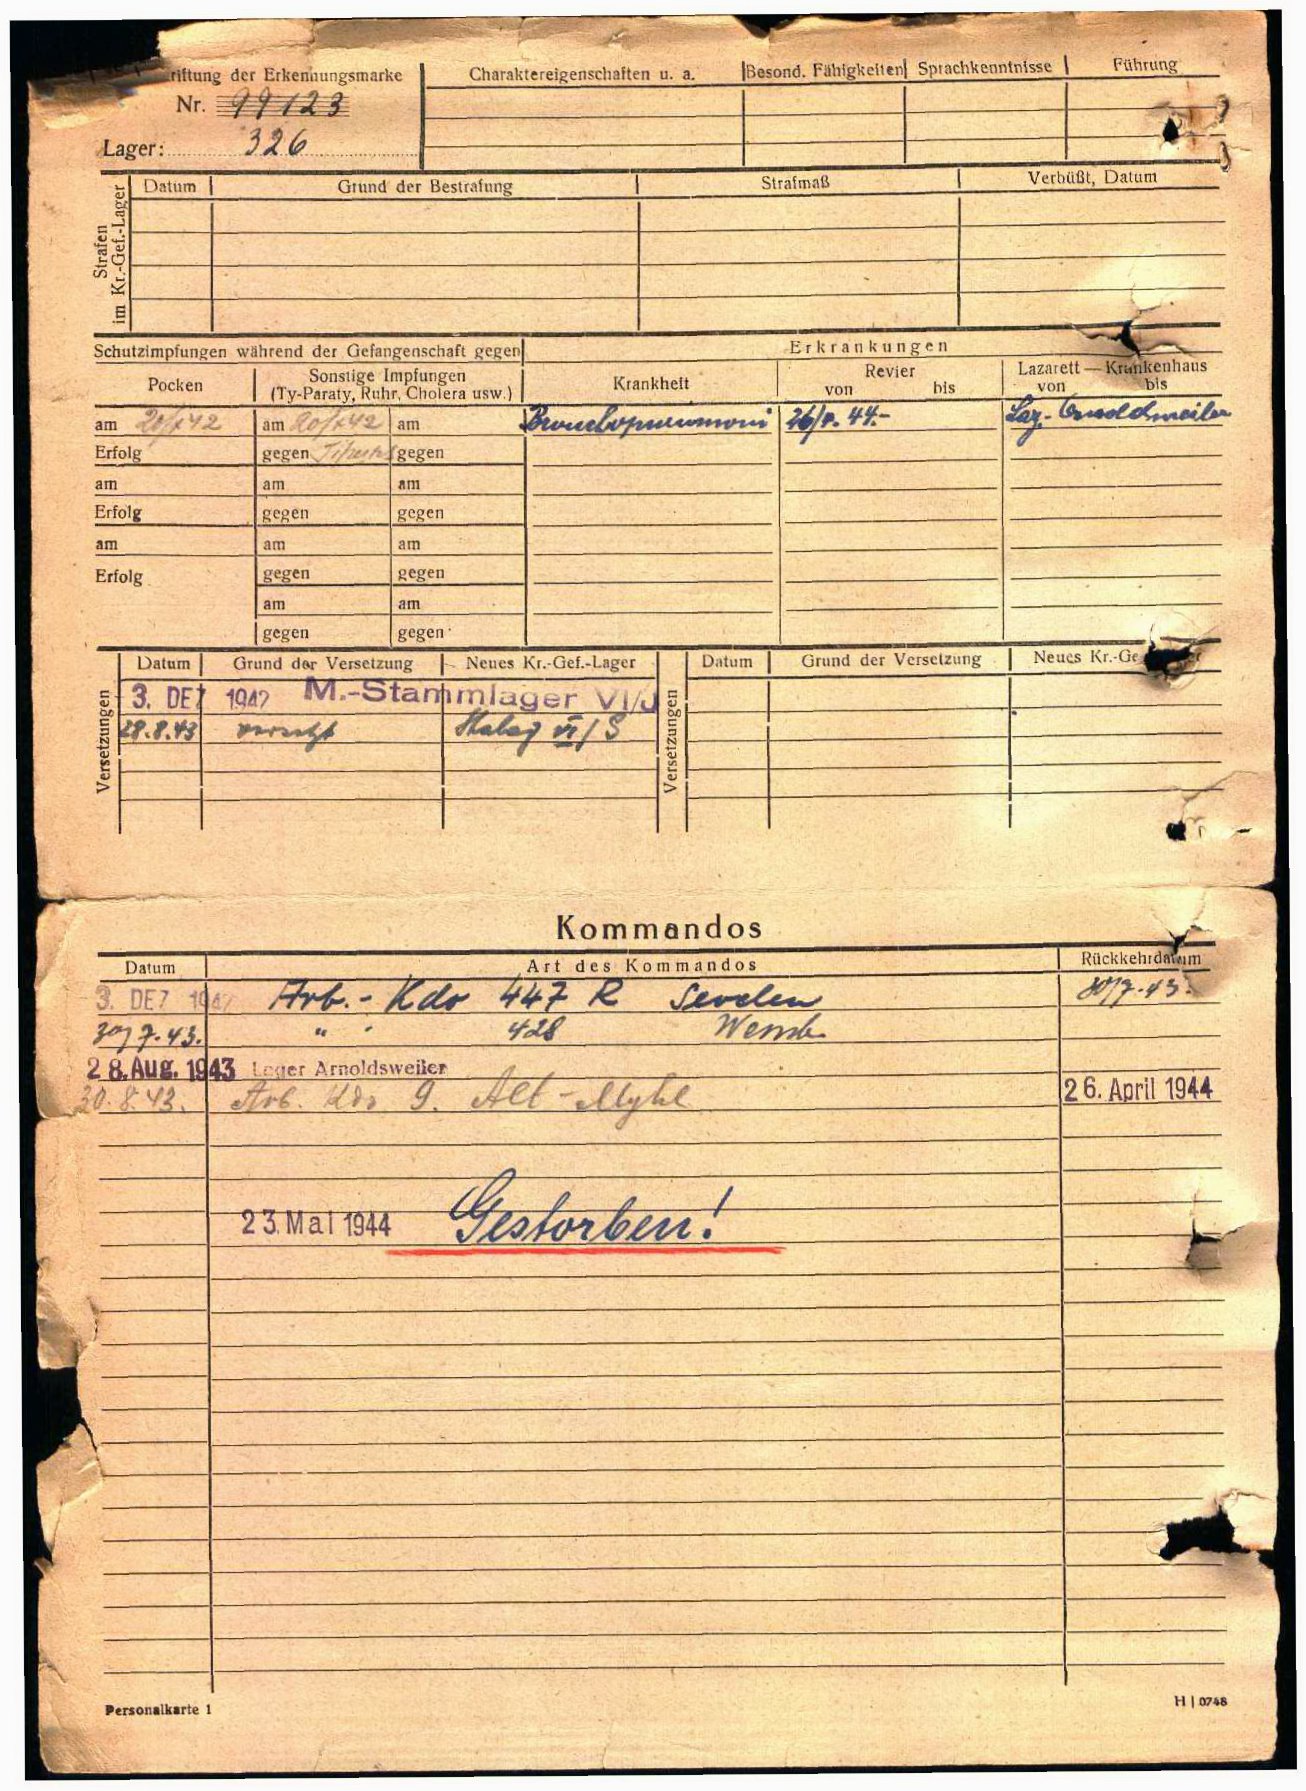 riftung der Erkennungsmarke
Nr. 99123
Lager: 326
Charaktereigenschaften u. a. Besond. Fähigkeiten Sprachkenntnisse Führung
Strafen im Kr.-Gef.-Lager
Datum Grund der Bestrafung Strafmaß Verbüßt, Datum
Schutzimpfungen während der Gefangenschaft gegen Erkrankungen
Pocken Sonstige Impfungen (Ty-Paraty, Ruhr, Cholera usw.) Krankheit Revier von bis Lazarett — Krankenhaus von bis
am am am Bronchopneumoni 44.- Laz. Arnoldsweiler
Erfolg gegen gegen
am am am
Erfolg gegen gegen
am am am
Erfolg gegen gegen
am am
gegen gegen
Versetzungen
Datum Grund der Versetzung Neues Kr.-Gef.-Lager
3. DEZ 1942 M.-Stammlager VI/J
28.8.43 versetzt Stalag VI/G
Versetzungen
Datum Grund der Versetzung Neues Kr.-Ge
Kommandos
Datum Art des Kommandos Rückkehrdatum
3. DEZ 1942 Arb.- Kdo 447 R Sevelen 30/7.43.
30/7.43. " " 428 Wemb.
28. Aug. 1943 Lager Arnoldsweiler
30.8.43. Arb. Kdo 9. Alt-Myhl 26. April 1944
23. Mai 1944 Gestorben!
Personalkarte 1
H | 0748